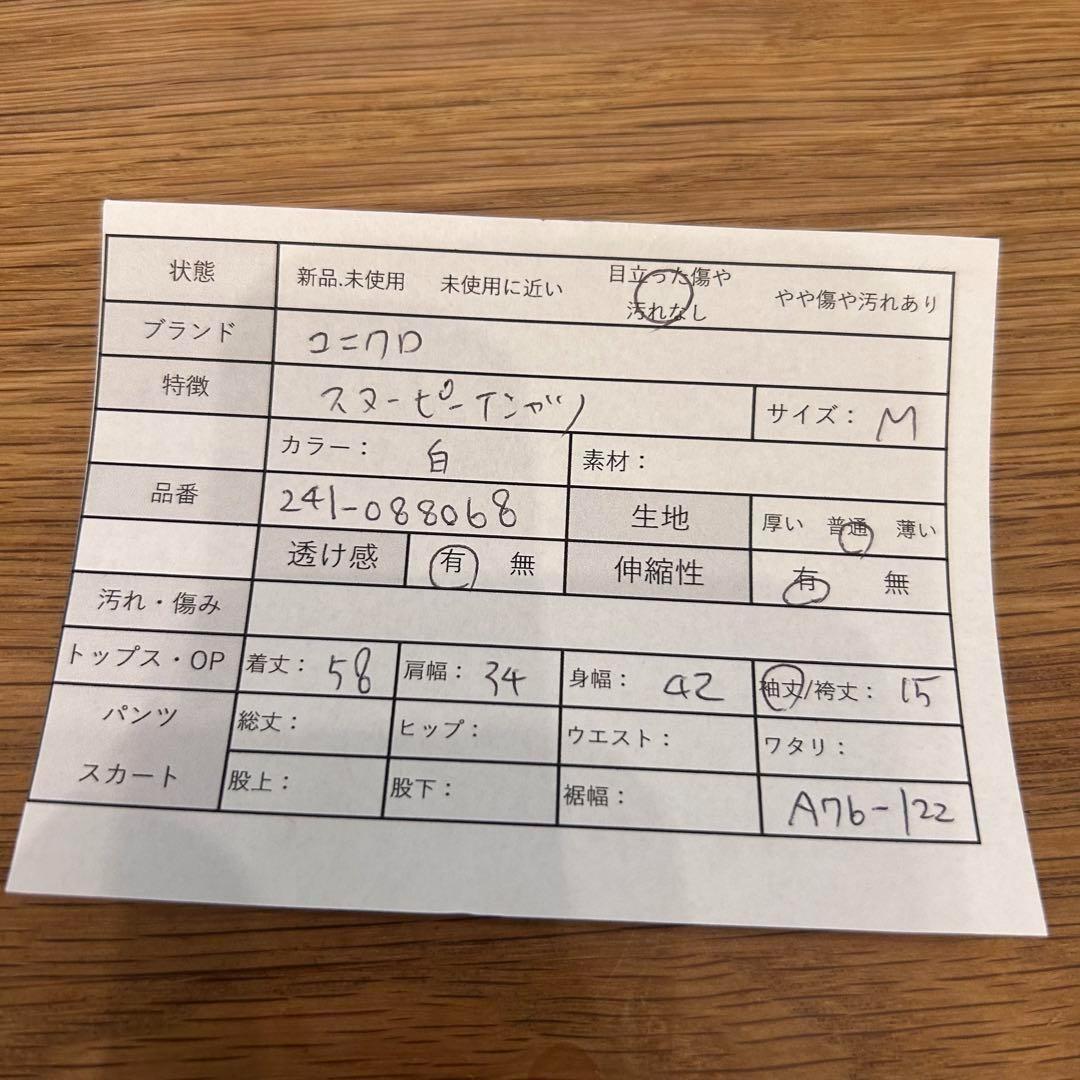 状態 新品、未使用 未使用に近い 目立った傷や汚れなし やや傷や汚れあり
ブランド ユニクロ
特徴 スヌーピーTシャツ サイズ： M
カラー： 白 素材：
品番 241-088068 生地 厚い 普通 薄い
透け感 有 無 伸縮性 有 無
汚れ・傷み
トップス・OP 着丈： 58 肩幅： 34 身幅： 42 袖丈/袴丈： 15
パンツ 総丈： ヒップ： ウエスト： ワタリ：
スカート 股上： 股下： 裾幅： A76-122